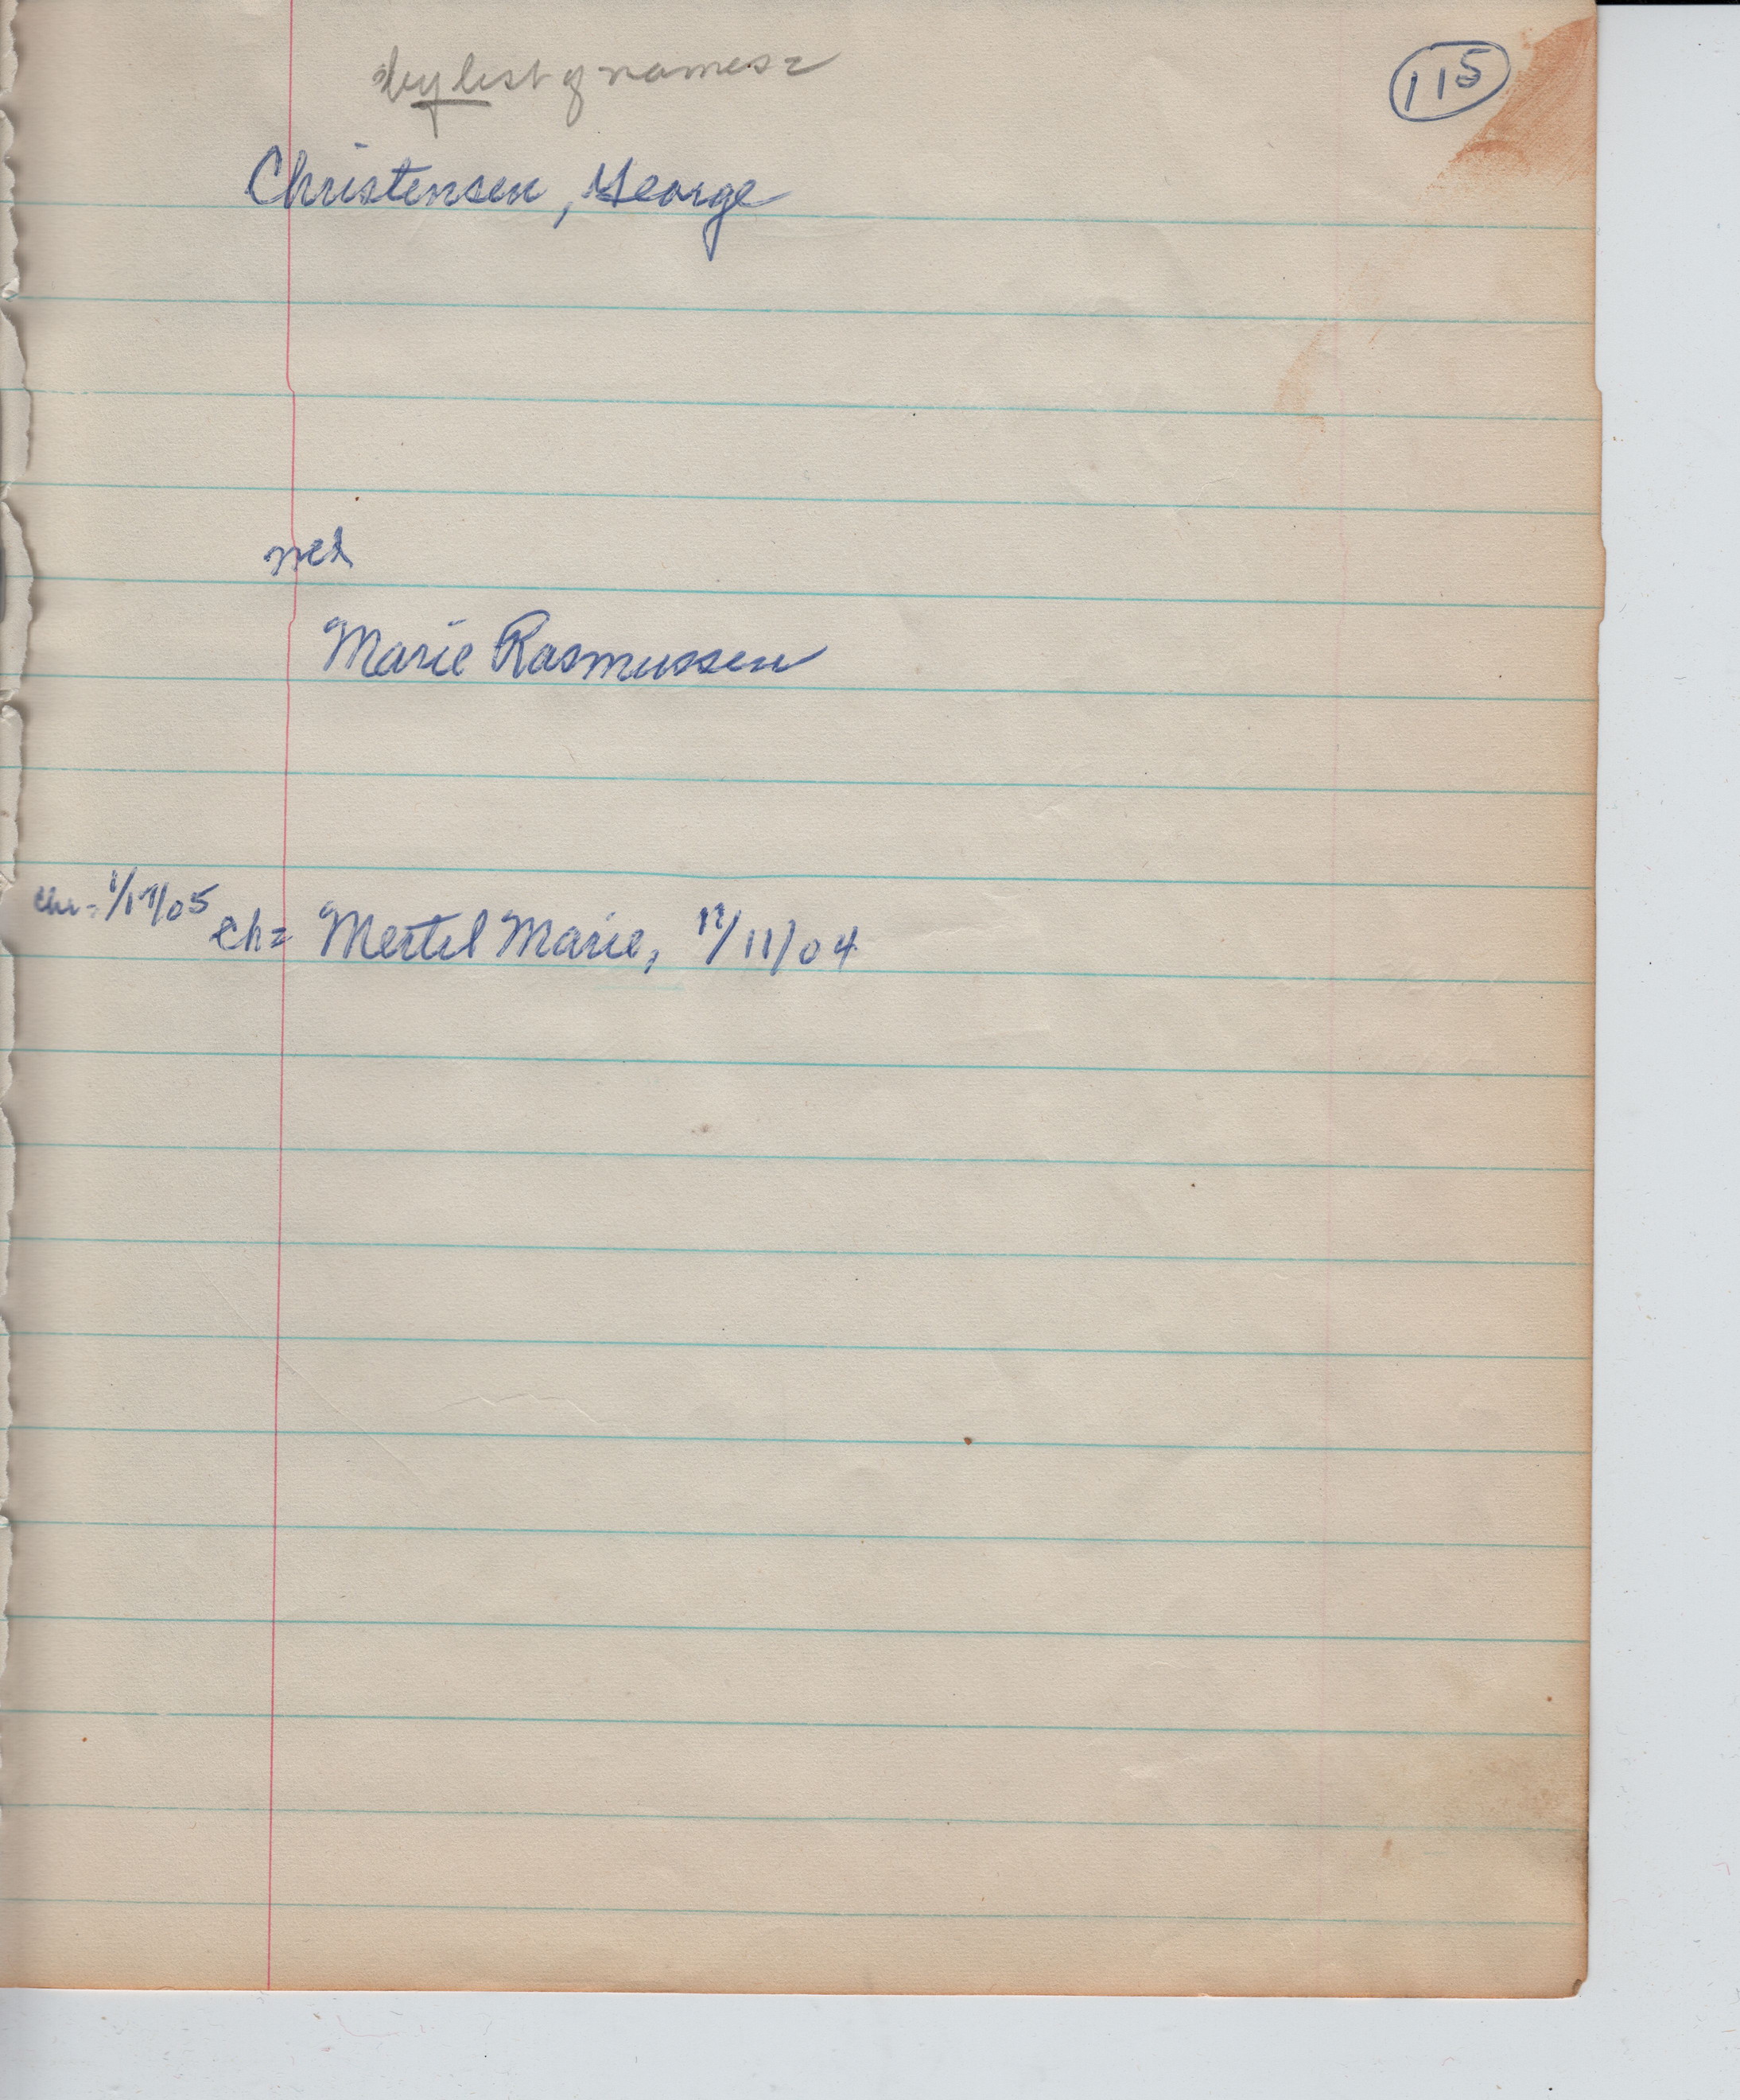 115
by list of names =
Christensen, George
Marie Rasmussen
chr = 1/17/05
ch = Mertel Marie, 12/11/04